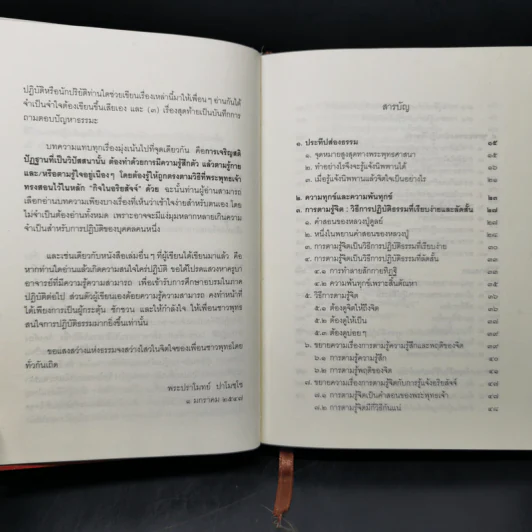 ปฏิบัติหรือนักปริยัติท่านใดช่วยเขียนเรื่องเหล่านี้มาให้เพื่อนๆ อ่านกันได้
จำเป็นจำใจต้องเขียนขึ้นเสียเอง และ (๓) เรื่องสุดท้ายเป็นบันทึกการ
ถามตอบปัญหาธรรมะ
บทความแทบทุกเรื่องมุ่งเน้นไปที่จุดเดียวกัน คือการเจริญสติ
ปัฏฐานที่เป็นวิปัสสนานั้น ต้องทำด้วยการมีความรู้สึกตัว แล้วตามรู้กาย
และ/หรือตามรู้ใจอยู่เนืองๆ โดยต้องรู้ให้ถูกตรงตามวิธีที่พระพุทธเจ้า
ทรงสอนไว้ในหลัก "กิจในอริยสัจจ์" ด้วย ฉะนั้นท่านผู้อ่านสามารถ
เลือกอ่านบทความเพียงบางเรื่องที่เห็นว่าเข้าใจง่ายสำหรับตนเอง โดย
ไม่จำเป็นต้องอ่านทั้งหมด เพราะอาจจะมีแง่มุมหลากหลายเกินความ
จำเป็นสำหรับการปฏิบัติของบุคคลคนหนึ่ง
และเช่นเดียวกับหนังสือเล่มอื่นๆ ที่ผู้เขียนได้เขียนมาแล้ว คือ
หากท่านใดอ่านแล้วเกิดความสนใจใคร่ปฏิบัติ ขอได้โปรดแสวงหาครูบา
อาจารย์ที่มีความรู้ความสามารถ เพื่อเข้ารับการศึกษาอบรมในภาค
ปฏิบัติต่อไป ส่วนตัวผู้เขียนเองด้อยความรู้ความสามารถ คงทำหน้าที่
ได้เพียงการเป็นผู้กระตุ้น ชักชวน และให้กำลังใจ ให้เพื่อนชาวพุทธ
สนใจการปฏิบัติธรรมมากยิ่งขึ้นเท่านั้น
ขอแสงสว่างแห่งธรรมจงสว่างไสวในจิตใจของเพื่อนชาวพุทธโดย
ทั่วกันเถิด
พระปราโมทย์ ปาโมชฺโช
๑ มกราคม ๒๕๔๗
สารบัญ
๑. ประทีปส่องธรรม ๑๕
๑. จุดหมายสูงสุดทางพระพุทธศาสนา
๒. ทำอย่างไรจึงจะรู้แจ้งนิพพานได้
๓. เมื่อรู้แจ้งนิพพานแล้วจิตใจเป็นอย่างไร
๒. ความทุกข์และความพ้นทุกข์ ๒๓
๓. การดูจิต : วิธีการปฏิบัติธรรมที่เรียบง่ายและลัดสั้น ๒๗
๑. คำสอนของหลวงปู่ดูลย์
๒. หนึ่งในพยานคำสอนของหลวงปู่
๓. การตามรู้จิตเป็นวิธีการปฏิบัติธรรมที่เรียบง่าย
๔. การตามรู้จิตเป็นวิธีการปฏิบัติธรรมที่ลัดสั้น
๔.๑ การทำลายสักกายทิฏฐิ
๔.๒ ความพ้นทุกข์เพราะสิ้นตัณหา
๕. วิธีการตามรู้จิต
๕.๑ ต้องดูจิตให้ถึงจิต
๕.๒ ต้องดูให้เป็น
๕.๓ ต้องดูบ่อยๆ
๖. ขยายความเรื่องการตามรู้ความรู้สึกและพฤติของจิต
๖.๑ การตามรู้ความรู้สึก
๖.๒ การตามรู้พฤติของจิต
๗. ขยายความเรื่องการตามรู้จิตกับการรู้แจ้งอริยสัจจ์ ๔๗
๗.๑ การตามรู้จิตเป็นคำสอนของพระพุทธเจ้า ๔๗
๗.๒ การตามรู้จิตมีกี่วิธีกันแน่ ๔๘